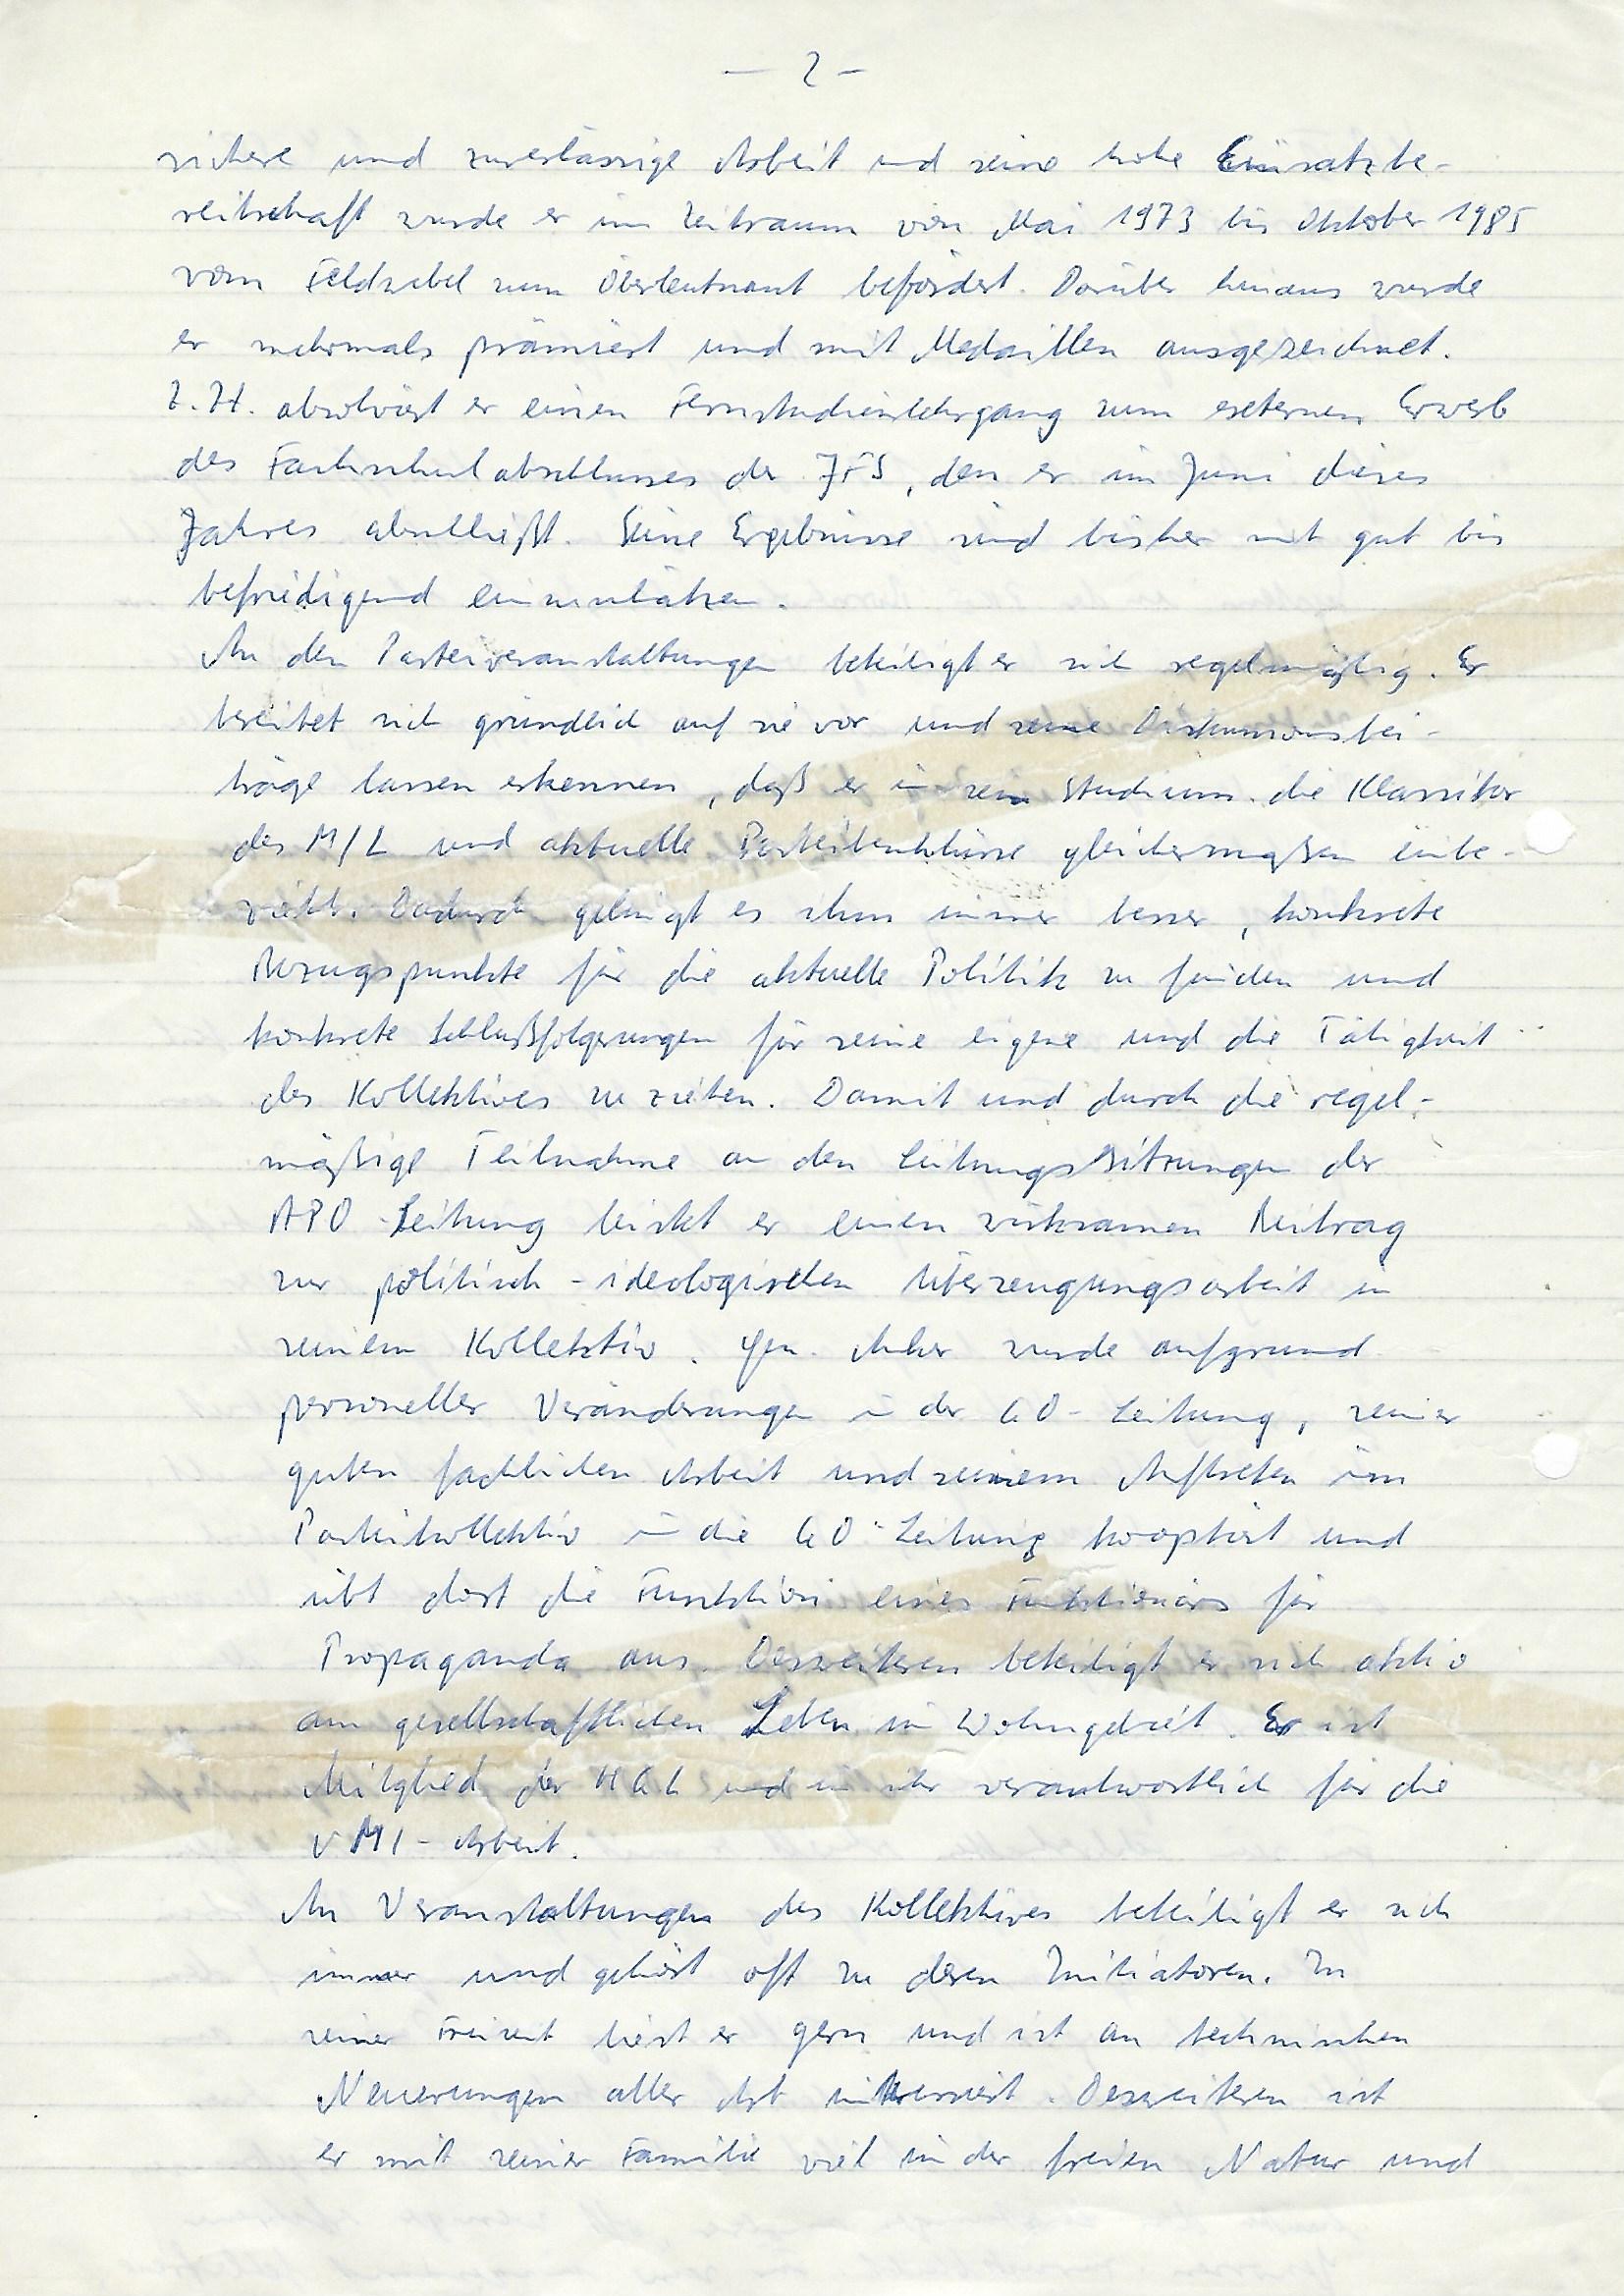 - 2 -
sichere und zuverlässige Arbeit und seine hohe Einsatzbe-
reitschaft wurde er im Zeitraum von Mai 1973 bis Oktober 1985
vom Feldwebel zum Oberleutnant befördert. Darüber hinaus wurde
er mehrmals prämiert und mit Medaillen ausgezeichnet.
Z. Zt. absolviert er einen Fernstudienlehrgang zum externen Erwerb
des Fachschulabschlusses der JHS, den er im Juni dieses
Jahres abschließt. Seine Ergebnisse sind bisher mit gut bis
befriedigend einzuschätzen.
An den Parteiveranstaltungen beteiligt er sich regelmäßig. Er
bereitet sich gründlich auf sie vor und seine Diskussionsbei-
träge lassen erkennen, daß er in sein Studium die Klassiker
des M/L und aktuelle Parteibeschlüsse gleichermaßen einbe-
zieht. Dadurch gelingt es ihm immer besser, konkrete
Bezugspunkte für die aktuelle Politik zu finden und
konkrete Schlußfolgerungen für seine eigene und die Tätigkeit
des Kollektives zu ziehen. Damit und durch die regel-
mäßige Teilnahme an den Leitungssitzungen der
APO-Leitung leistet er einen wirksamen Beitrag
zur politisch-ideologischen Überzeugungsarbeit in
seinem Kollektiv. Gen. wurde aufgrund
personeller Veränderungen in der GO-Leitung, seiner
guten fachlichen Arbeit und seinem Auftreten im
Parteikollektiv in die GO-Leitung kooptiert und
übt dort die Funktion eines Funktionärs für
Propaganda aus. Desweiteren beteiligt er sich aktiv
am gesellschaftlichen Leben im Wohngebiet. Er ist
Mitglied der HGL und in ihr verantwortlich für die
VMI-Arbeit.
An Veranstaltungen des Kollektives beteiligt er sich
immer und gehört oft zu deren Initiatoren. In
seiner Freizeit liest er gern und ist an technischen
Neuerungen aller Art interessiert. Desweiteren ist
er mit seiner Familie viel in der freien Natur und